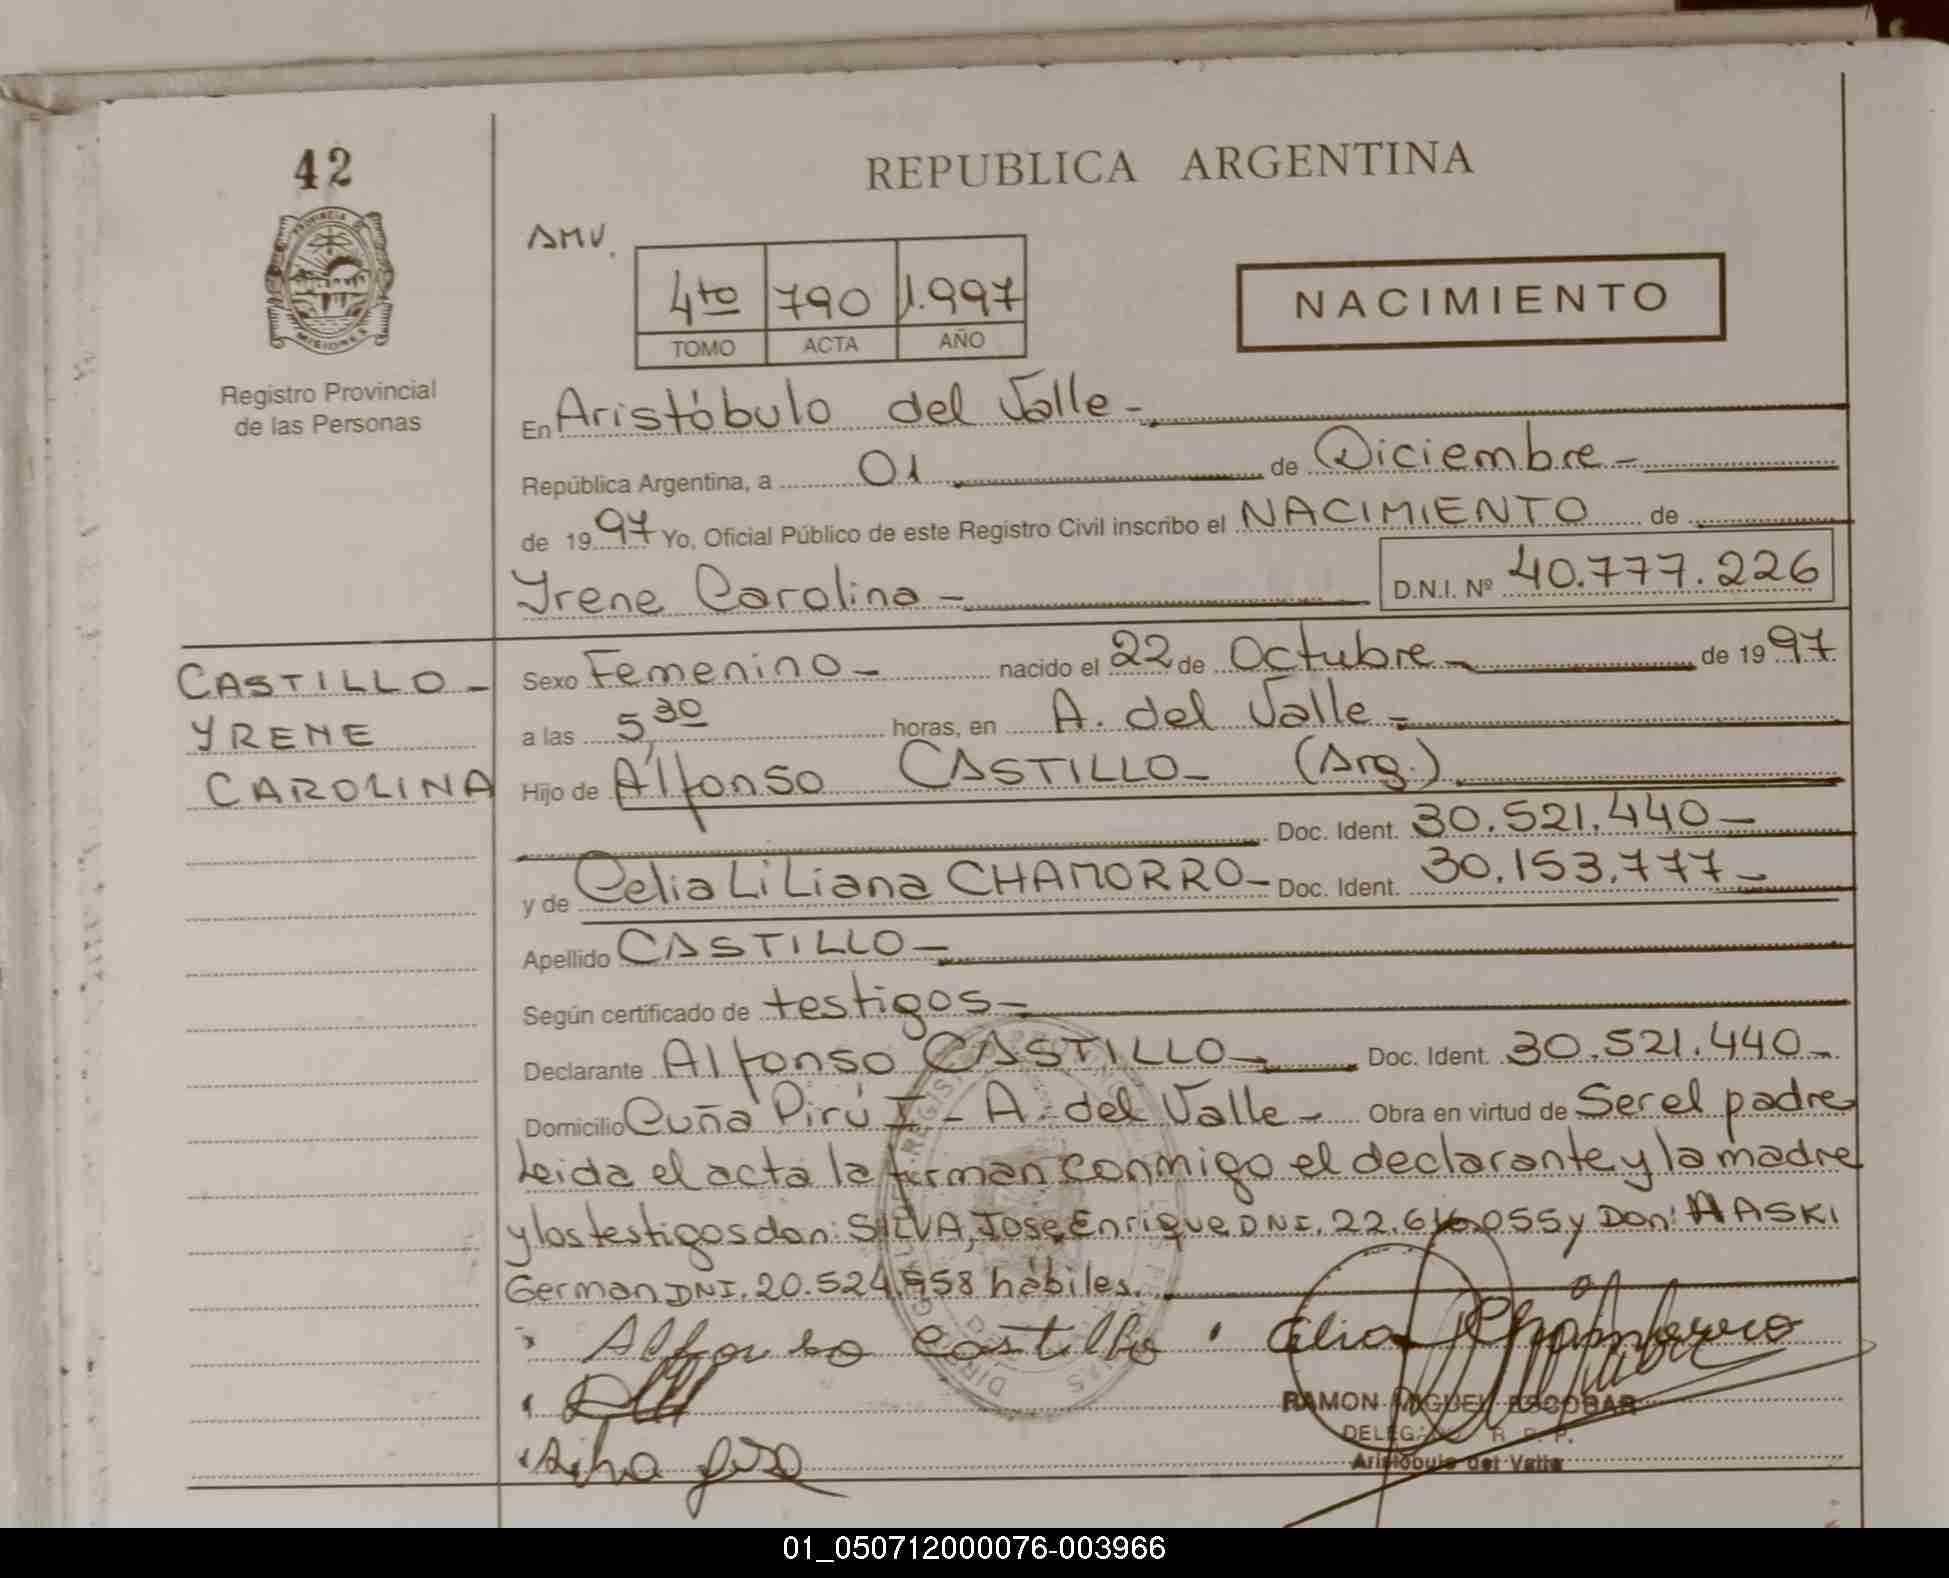 42
REPUBLICA ARGENTINA
AMV.
4to 790 1.997
TOMO ACTA AÑO
NACIMIENTO
PROVINCIA DE
MISIONES
Registro Provincial
de las Personas
En Aristóbulo del Valle-
República Argentina, a 01 de Diciembre-
de 1997 Yo, Oficial Público de este Registro Civil inscribo el NACIMIENTO de
Yrene Carolina- D.N.I. Nº 40.777.226
CASTILLO-
YRENE
CAROLINA
Sexo Femenino- nacido el 22 de Octubre- de 1997
a las 5,30 horas, en A. del Valle-
Hijo de Alfonso CASTILLO- (Arg.)
Doc. Ident. 30.521.440-
y de Celia Liliana CHAMORRO- Doc. Ident. 30.153.777-
Apellido CASTILLO-
Según certificado de testigos-
Declarante Alfonso CASTILLO- Doc. Ident. 30.521.440-
Domicilio Cuña Pirú I - A. del Valle- Obra en virtud de Ser el padre
Leida el acta la firman conmigo el declarante y la madre
y los testigos don: SILVA, Jose Enrique DNI. 22.616.055 y Don: HASKI
German DNI. 20.524.958 hábiles.
Alfonso Castillo Celia Chamorro
RAMON MIGUEL ESCOBAR
DELEGADO R. P. P.
Aristóbulo del Valle
Silva José
01_050712000076-003966